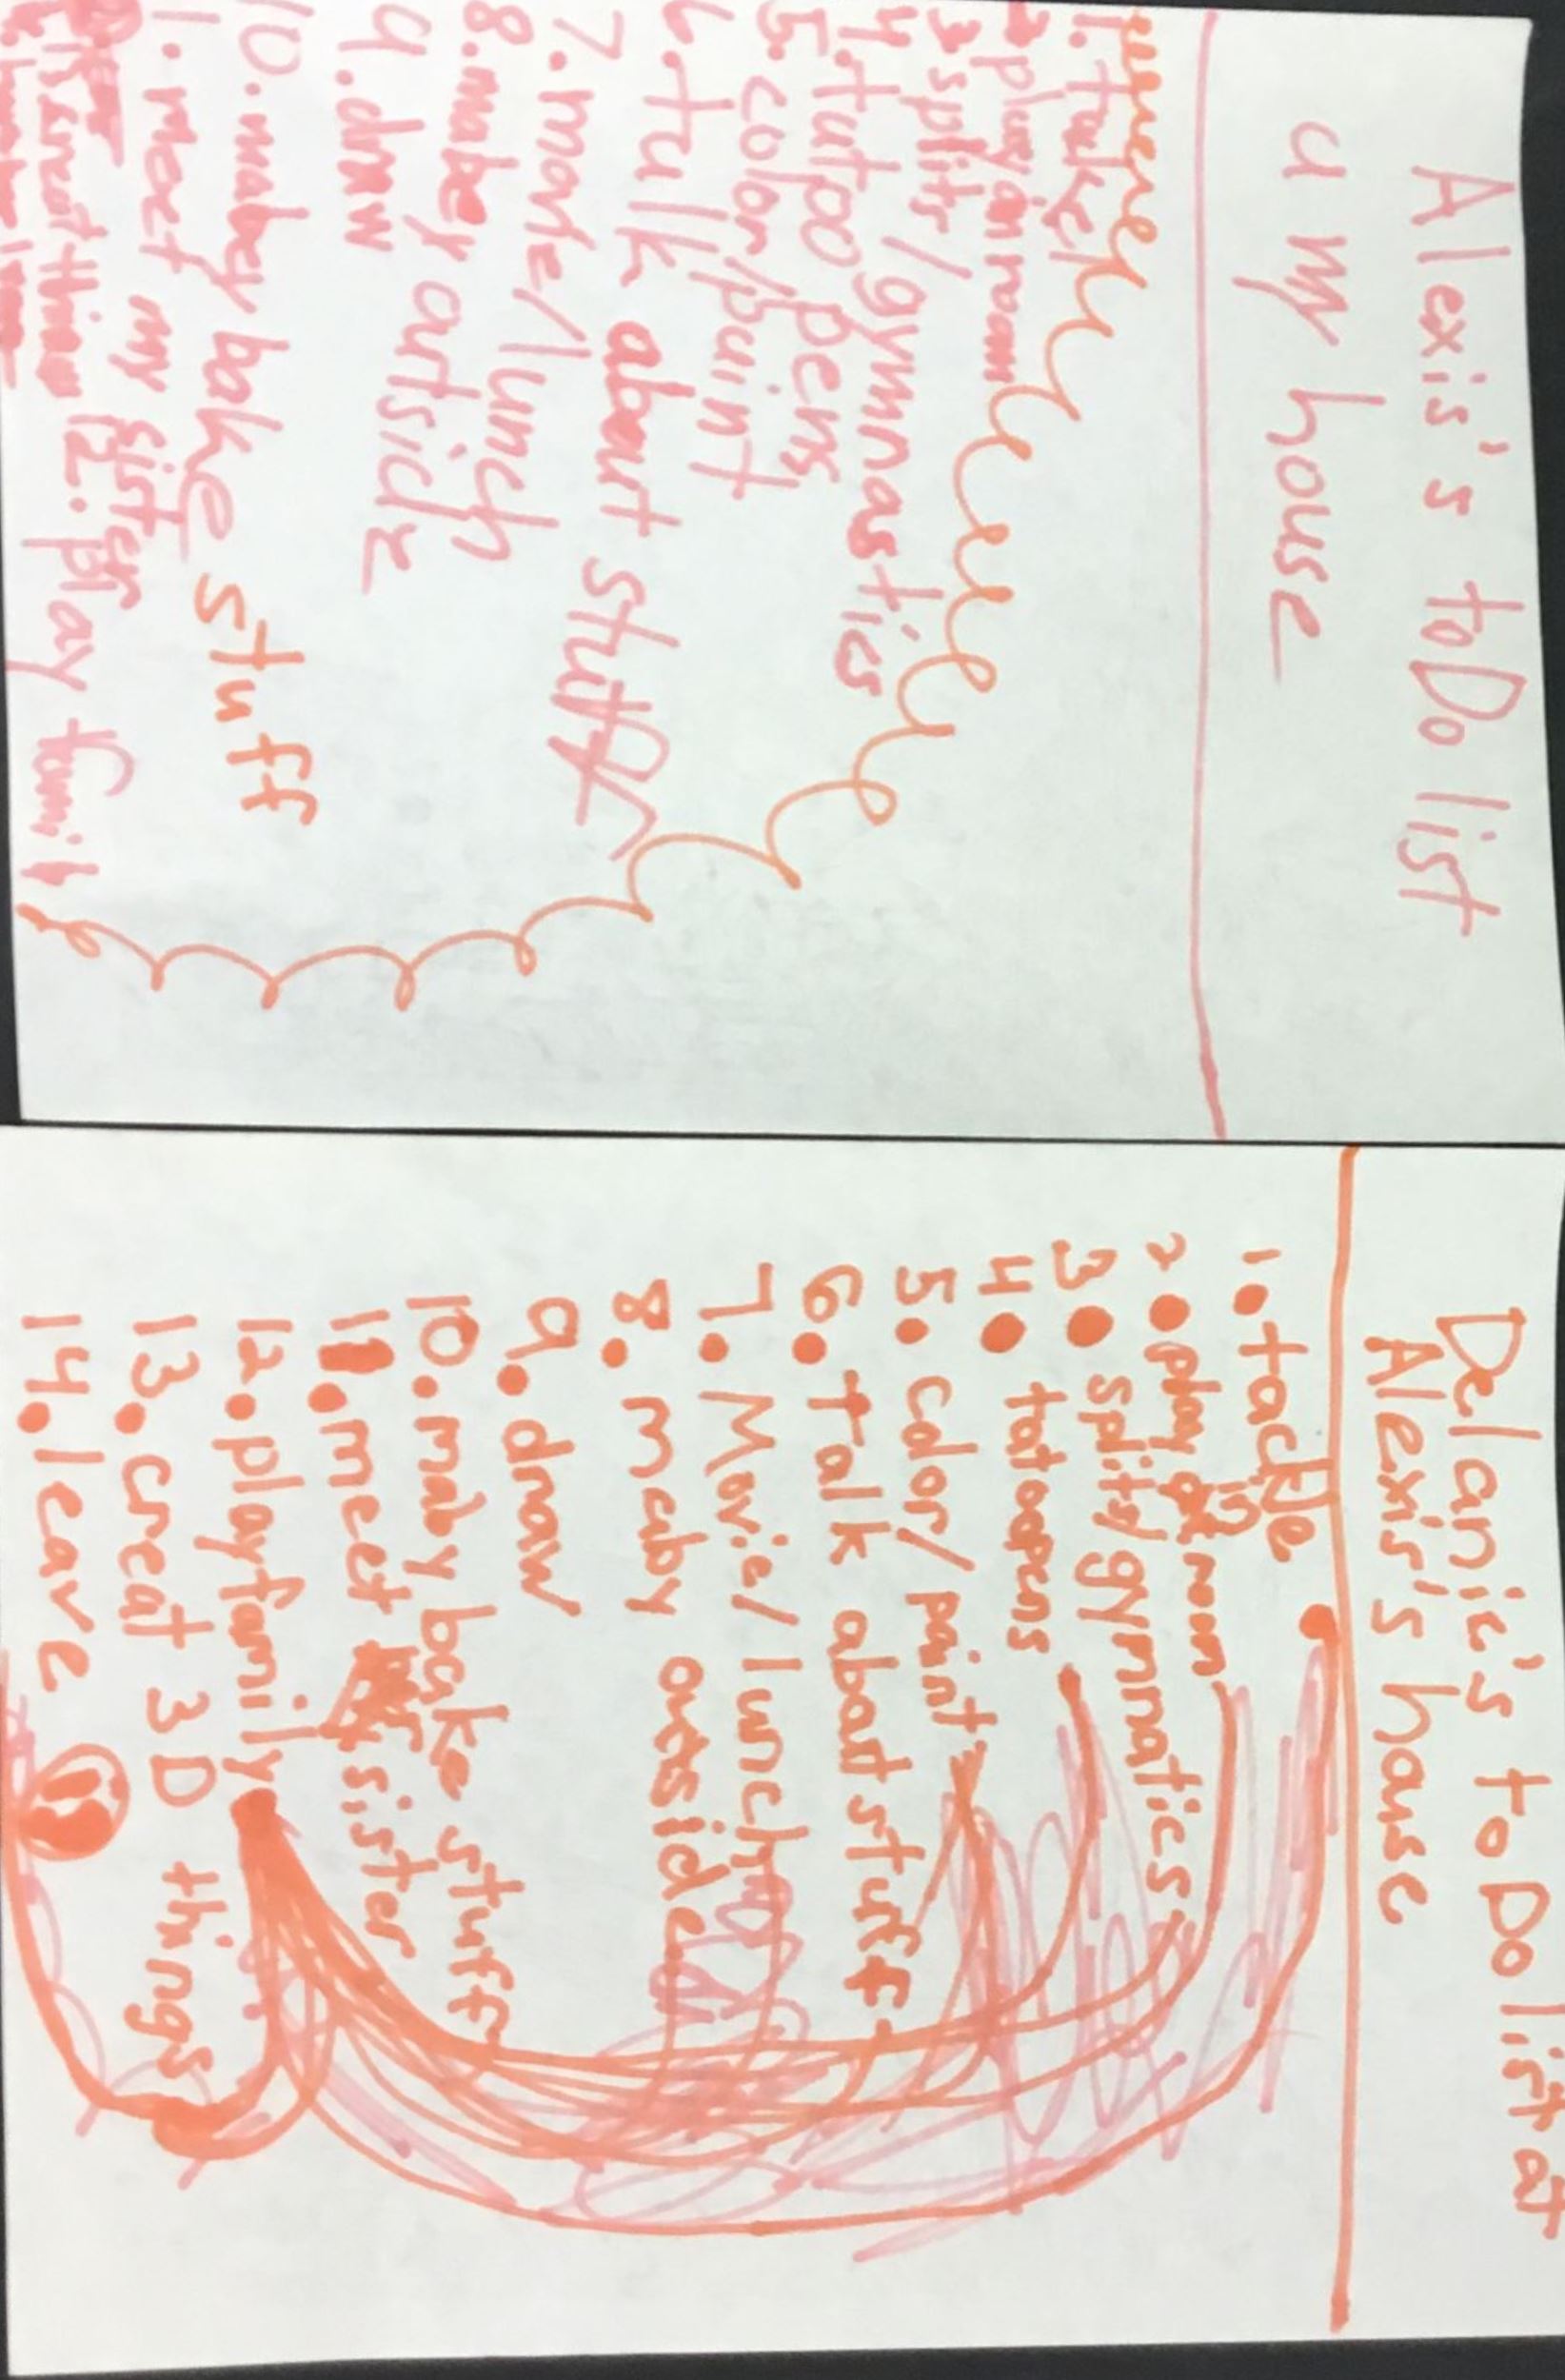 Alexis's toDo list
a my house
1. take
2 play in room
3 splits/
gymnastics
4. tatpoo pens
5. color/paint
6. talk about stuff
7. move/lunch
8. mabey outside
9. draw
10. mabey bake stuff
1. meet my sister
12. play famil
Delanie's to Do list at
Alexis's house
1. tackle
2. play in room
3. splits/gymnatics
4. tatoopens
5. color/paint
6. Talk abat stuff
7. Movie/lunch
8. maby outside
9. draw
10. maby bake stuff
11. meet sister
12. play family
13. creat 3D things
14. leave